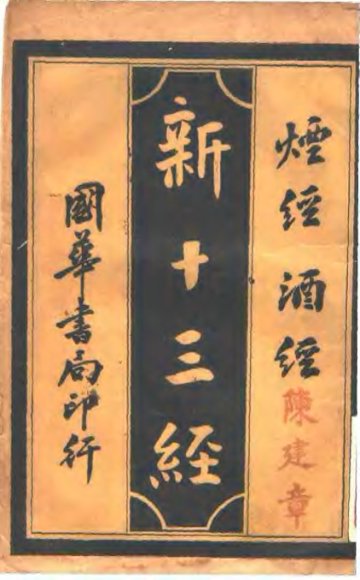 煙經 酒經
陳建章
新十三経
國華書局印行